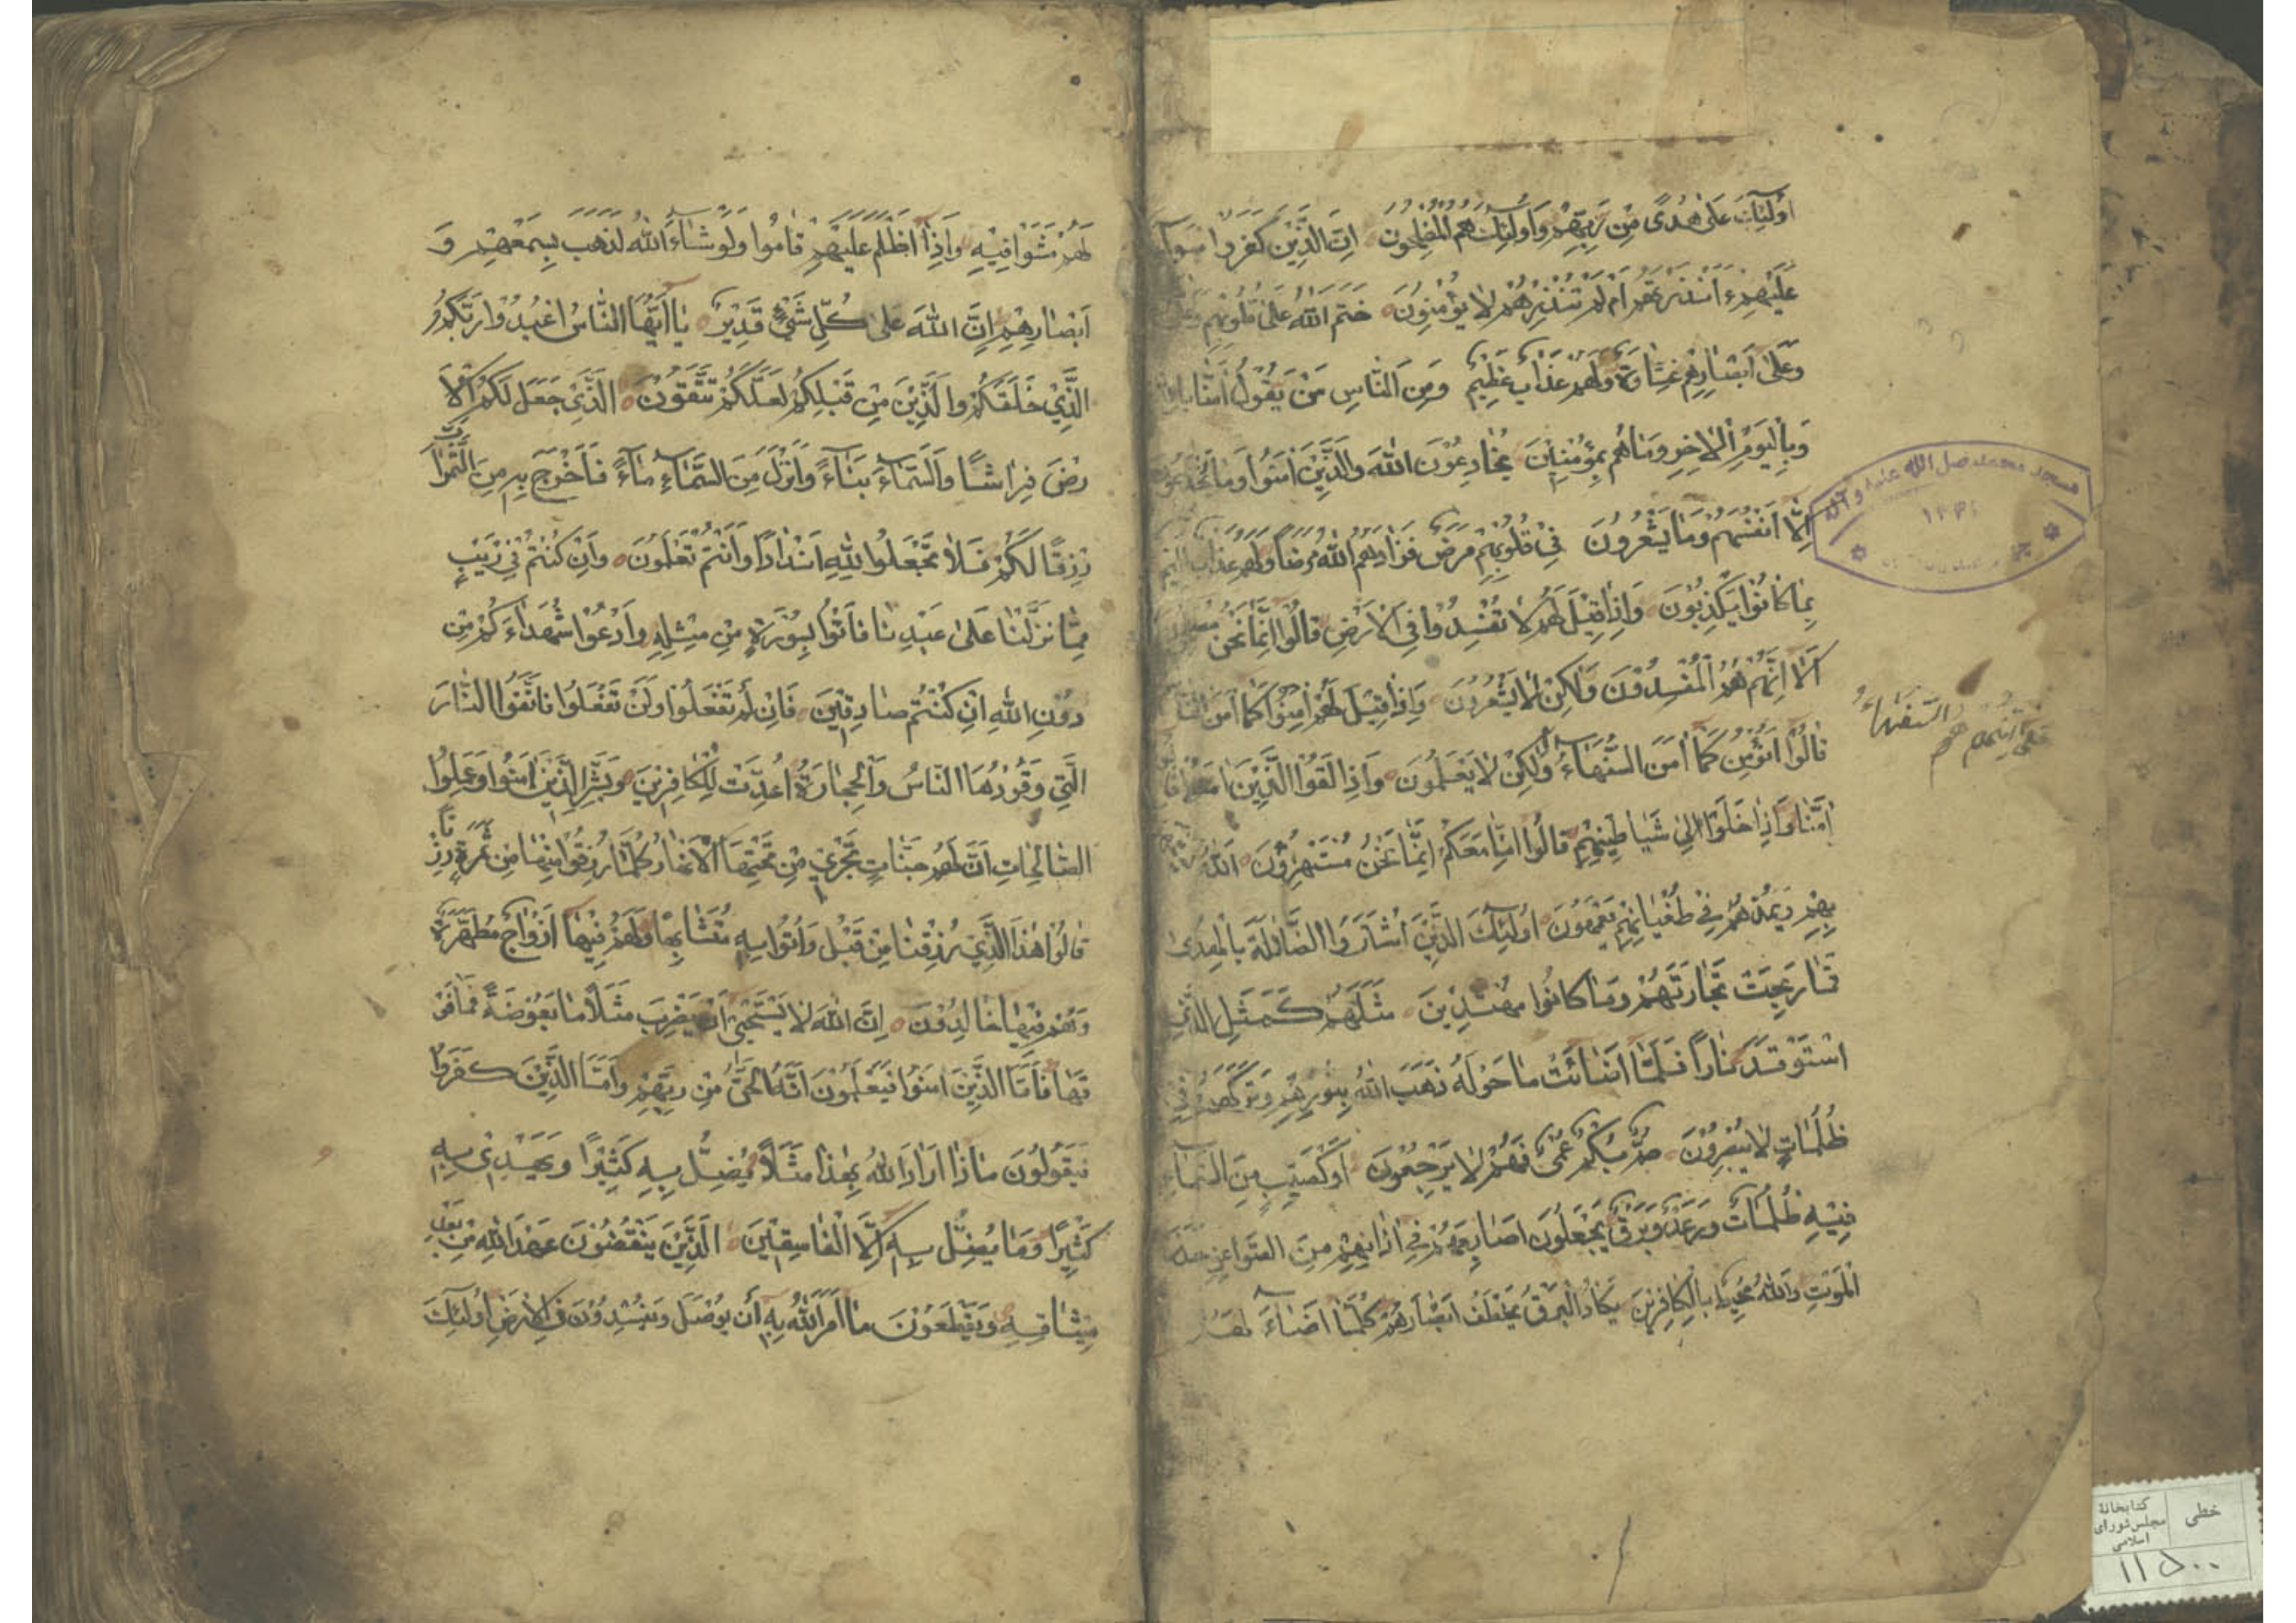 اولئك على هدى من ربهم واولئك هم المفلحون ان الذين كفروا سوآء
عليهم ءانذرتهم ام لم تنذرهم لا يؤمنون ختم الله على قلوبهم
وعلى ابصارهم غشاوة ولهم عذاب عظيم ومن الناس من يقول امنا بالله
وباليوم الاخر وماهم بمؤمنين يخادعون الله والذين امنوا وما يخدعون
الا انفسهم وما يشعرون في قلوبهم مرض فزادهم الله مرضا ولهم عذاب اليم
بما كانوا يكذبون واذا قيل لهم لا تفسدوا في الارض قالوا انما نحن
الا انهم هم المفسدون ولكن لا يشعرون واذا قيل لهم امنوا كما امن الناس
قالوا انؤمن كما امن السفهاء ولكن لا يعلمون واذا لقوا الذين امنوا
امنا واذا خلوا الى شياطينهم قالوا انا معكم انما نحن مستهزؤن الله
بهم ويمدهم في طغيانهم يعمهون اولئك الذين اشتروا الضلالة بالهدى
فما ربحت تجارتهم وما كانوا مهتدين مثلهم كمثل الذي
استوقد نارا فلما اضائت ما حوله ذهب الله بنورهم وتركهم في
ظلمات لا يبصرون صم بكم عمى فهم لا يرجعون او كصيب من السماء
فيه ظلمات ورعد وبرق يجعلون اصابعهم في اذانهم من الصواعق حذر
الموت والله محيط بالكافرين يكاد البرق يخطف ابصارهم كلما اضاء لهم
السفهاء
هم
مسجد محمد صل الله علیه و آله
خطی
کتابخانهٔ
مجلس شورای
اسلامی
۱۱۵۰۰
لهم مشوا فيه واذا اظلم عليهم قاموا ولو شاء الله لذهب بسمعهم و
ابصارهم ان الله على كل شئ قدير يا ايها الناس اعبدوا ربكم
الذي خلقكم والذين من قبلكم لعلكم تتقون الذي جعل لكم الا
رض فراشا والسماء بناء وانزل من السماء ماء فاخرج به من الثمرات
رزقا لكم فلا تجعلوا لله اندادا وانتم تعلمون وان كنتم في ريب
مما نزلنا على عبدنا فاتوا بسورة من مثله وادعوا شهداءكم من
دون الله ان كنتم صادقين فان لم تفعلوا ولن تفعلوا فاتقوا النار
التي وقودها الناس والحجارة اعدت للكافرين وبشر الذين امنوا وعملوا
الصالحات ان لهم جنات تجري من تحتها الانهار كلما رزقوا منها من ثمرة رزقا
قالوا هذا الذي رزقنا من قبل واتوا به متشابها ولهم فيها ازواج مطهرة
وهم فيها خالدون ان الله لا يستحيى ان يضرب مثلا ما بعوضة فما فو
قها فاما الذين امنوا فيعلمون انه الحق من ربهم واما الذين كفروا
فيقولون ماذا اراد الله بهذا مثلا يضل به كثيرا ويهدي به
كثيرا وما يضل به الا الفاسقين الذين ينقضون عهد الله من بعد
ميثاقه ويقطعون ما امر الله به أن يوصل ويفسدون في الارض اولئك